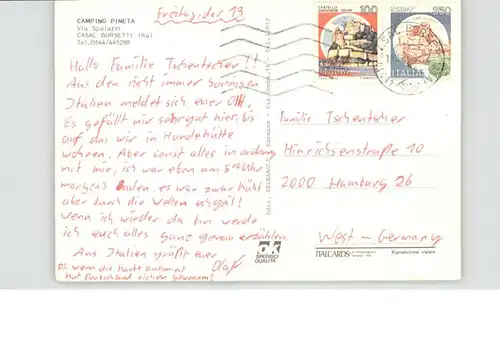 CAMPING PINETA
Via Spalazzi
CASAL BORSETTI (Ra)
Tel. 0544/445298
Freitag der 13
Hallo Familie Tschentscher!!
Aus den nicht immer sonnigen
Italien meldet sich euer Olli.
Es gefällt mir sehr gut hier, bis
auf das wir in Hundehütte
wohnen. Aber sonst alles in ordnung
mit mir, ich war eben um 5 Uhr
morgens baden. es war zwar kühl
aber durch die Wellen egal!
Wenn ich wieder da bin werde
ich euch alles ganz genau erzählen.
Aus Italien grüßt euer
Olaf
wenn die Karte ankommt
hat Deutschland sicher gewonnen!
100
250
ITALIA
Familie Tschentscher
Hinrichsenstraße 10
2000 Hamburg 26
West-Germany
OK
SPEDISCI
QUALITA'
ITALCARDS
Riproduzione vietata